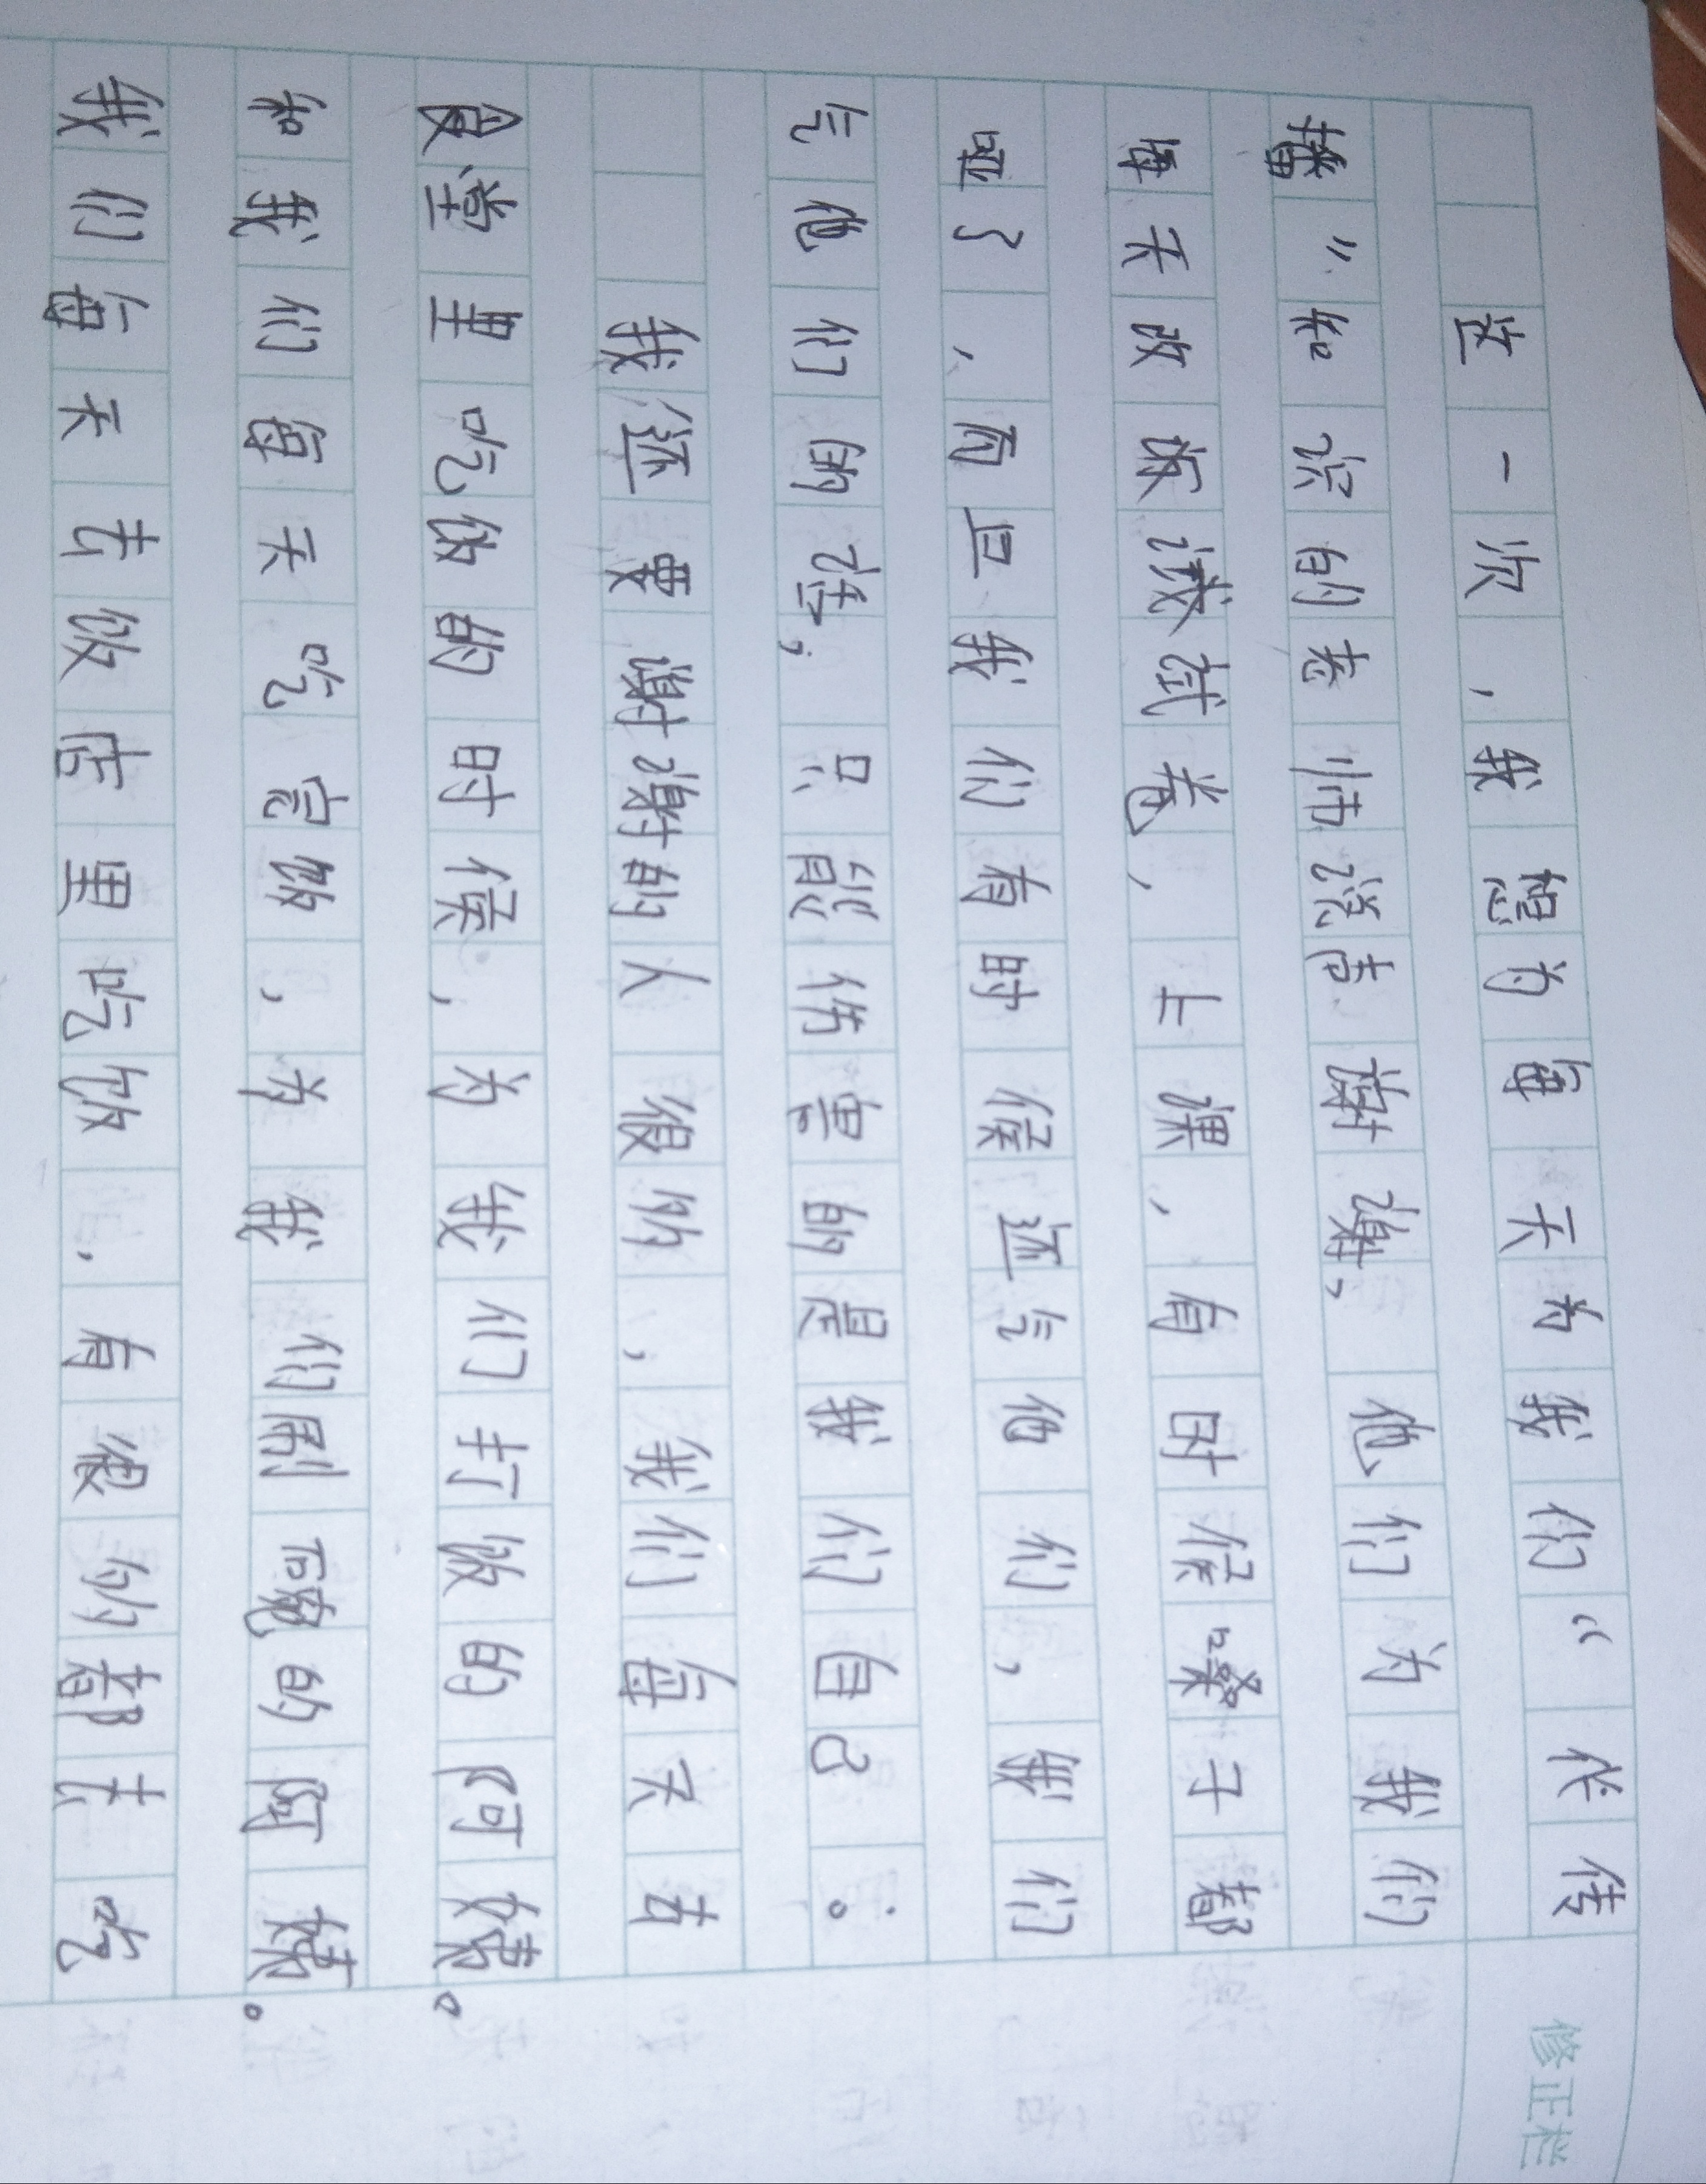 这一次，我想为每天为我们“传
播”知识的老师说声谢谢，他们为我们
每天改试卷，上课，有时候嗓子都
哑了，而且我们有时候还气他们，我们
气他们的话，只能伤害的是我们自己。
我还要谢谢的人很多，我们每天去
食堂里吃饭的时候，为我们打饭的阿姨。
和我们每天吃完饭，为我们刷碗的阿姨。
我们每天去饭店里吃饭，有很多都吃
修正栏